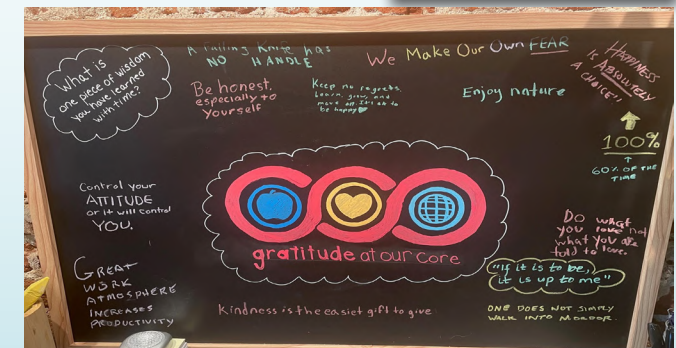 What is
one piece of wisdom
you have learned
with time?
A falling knife has
NO HANDLE
We Make Our Own FEAR
HAPPINESS
IS ABSOLUTELY
A CHOICE!!
100%
60% OF THE
TIME
Be honest,
especially to
yourself
Keep no regrets.
Learn, grow, and
move on. It's ok to
be happy
Enjoy nature
Control your
ATTITUDE
or it will control
YOU.
gratitude at our core
Do what
you love not
what you are
told to love.
"If it is to be,
it is up to me"
GREAT
WORK
ATMOSPHERE
INCREASES
PRODUCTIVITY
Kindness is the easiet gift to give
ONE DOES NOT SIMPLY
WALK INTO MORDOR.